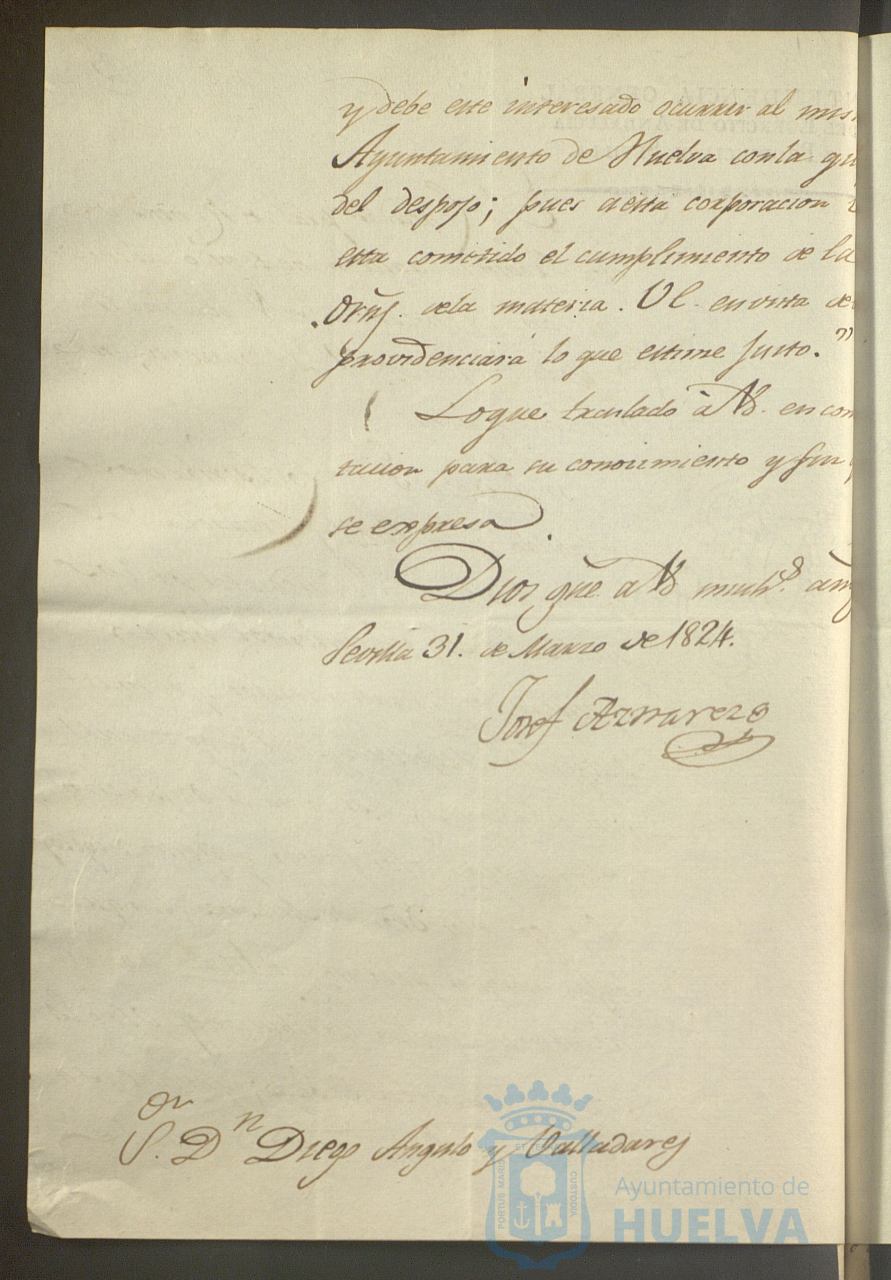 y debe este interesado ocurrir al mis
Ayuntamiento de Huelva con la qu
del despojo; pues a esta corporacion
esta cometido el cumplimiento de la
Orns. de la materia. VS. en vista de
providenciará lo que estime justo."
Lo que traslado à VS. en con
tacion para su conocimiento y fin
se expresa.
Dios gue. a VS muchs. añ
Sevilla 31. de Marzo de 1824.
Josef Aznarez
Sor. Dn Diego Angulo y Valladares
PORTUS MARIS ET TERRAE CUSTODIA
Ayuntamiento de
HUELVA